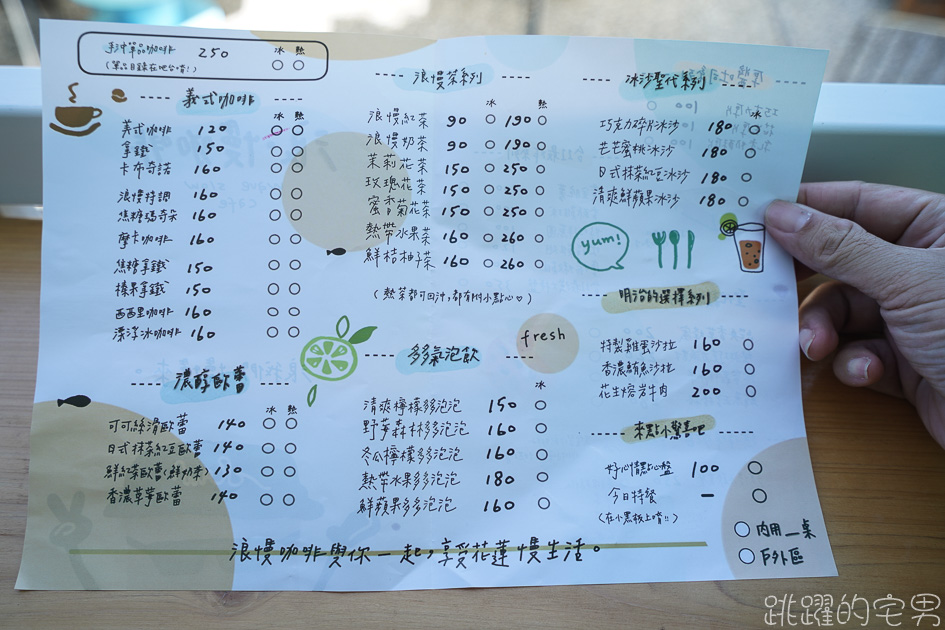 手沖單品咖啡 250 冰 熱
(單品目錄在吧台唷!)
義式咖啡
冰 熱
美式咖啡 120
拿鐵 150
卡布奇諾 160
浪慢特調 160
焦糖瑪奇朵 160
摩卡咖啡 160
焦糖拿鐵 150
榛果拿鐵 150
西西里咖啡 160
漂浮冰咖啡 160
濃醇歐蕾
冰 熱
可可絲滑歐蕾 140
日式抹茶紅豆歐蕾 140
鮮紅茶歐蕾(鮮奶茶) 130
香濃芋芋歐蕾 140
浪慢茶系列
冰 熱
浪慢紅茶 90 190
浪慢奶茶 90 190
茉莉花茶 150 250
玫瑰花茶 150 250
蜜香菊花茶 150 250
熱帶水果茶 160 260
鮮桔柚子茶 160 260
(熱茶都可回沖,都有附小點心♡)
fresh
多多氣泡飲
冰
清爽檸檬多泡泡 150
野莓森林多泡泡 160
冬瓜檸檬多泡泡 160
熱帶水果多泡泡 180
鮮蘋果多多泡泡 160
冰沙聖代系列
冰
巧克力碎片冰沙 180
芒芒蜜桃冰沙 180
日式抹茶紅豆冰沙 180
清爽鮮蘋果冰沙 180
yum!
明治的選擇系列
特製雞蛋沙拉 160
香濃鮪魚沙拉 160
花生熔岩牛肉 200
來點小驚喜吧
好心情點心盤 100
今日特餐 —
(在小黑板上唷!!)
內用__桌
戶外區
浪慢咖啡與你一起,享受花蓮慢生活。
跳躍的宅男